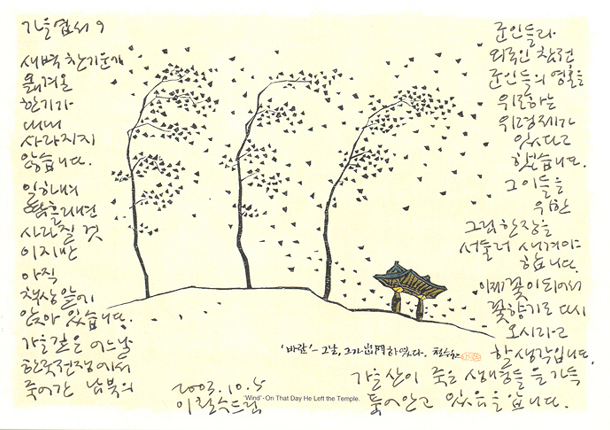 가을엽서 9
새벽 찬기운에
옮겨온
한기가
내내
사라지지
않습니다.
일하며
땀흘리면
사라질 것
이지만
아직
책상앞에
앉아 있습니다.
가을깊은 어느날
한국전쟁에서
죽어간 남북의
군인들과
외국인 참전
군인들의 영혼을
위로하는
위령제가
있다고
했습니다.
그이들을
위한
그림한장을
서둘러 새겨야
합니다.
이제 꽃이 되어서
꽃향기로 다시
오시라고
할 생각입니다.
가을산이 죽은 생명들을 가득
품어안고 있음을 압니다.
2003.10.5
이철수드림
'바람' - 그날, 그가 出門하였다. 철수
"Wind"- On That Day He Left the Temple.